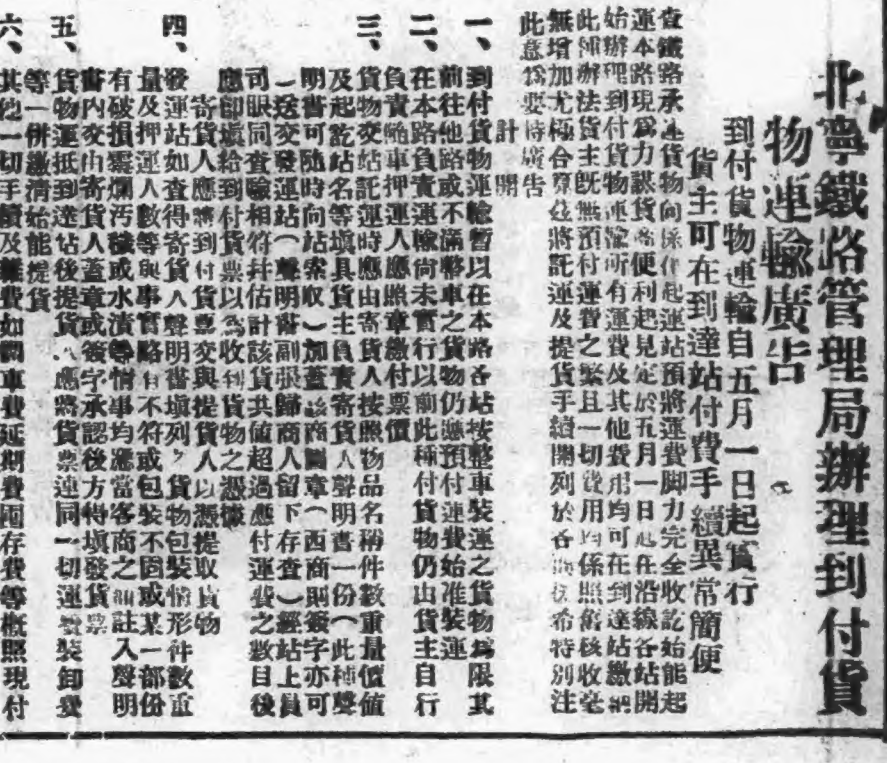 北寧鐵路管理局辦理到付貨
物運輸廣告
到付貨物運輸自五月一日起實行
貨主可在到達站付費手續異常簡便
查鐵路承運貨物向係在起運站預將運費脚力完全收訖始能起
運本路現爲力謀貨商便利起見定於五月一日起在沿線各站開
始辦理到付貨物運輸所有運費及其他費用均可在到達站繳納
此種辦法貨主既無預付運費之繁且一切費用均係照舊核收毫
無增加尤極合算茲將託運及提貨手續開列於各項後希特別注
此意爲要特廣告
計開
一、到付貨物運輸暫以在本路各站按整車裝運之貨物爲限其
前往他路或不滿整車之貨物仍應預付運費始准裝運
二、在本路負責運輸尚未實行以前此種付貨物仍由貨主自行
負責隨車押運人應照章繳付票價
三、貨物交站託運時應由寄貨人按照物品名稱件數重量價値
及起訖站名等塡具貨主負責寄貨人聲明書一份(此種聲
明書可隨時向站索取)加蓋該商圖章(西商則簽字亦可
)送交發運站(聲明書副張歸商人留下存查)經站上員
司眼同查驗相符幷估計該貨共値超過應付運費之數目後
應卽塡給到付貨票以爲收到貨物之憑據
寄貨人應將到付貨票交與提貨人以憑提取貨物
四、發運站如查得寄貨人聲明書塡列之貨物包裝情形件數重
量及押運人數等與事實略有不符或包裝不固或某一部份
有破損霉爛汚穢或水漬等情事均應當客商之面註入聲明
書內交由寄貨人蓋章或簽字承認後方得塡發貨票
五、貨物運抵到達站後提貨人應將貨票連同一切運費裝卸費
等一併繳清始能提貨
六、其他一切手續及雜費如調車費延期費囤存費等槪照現付